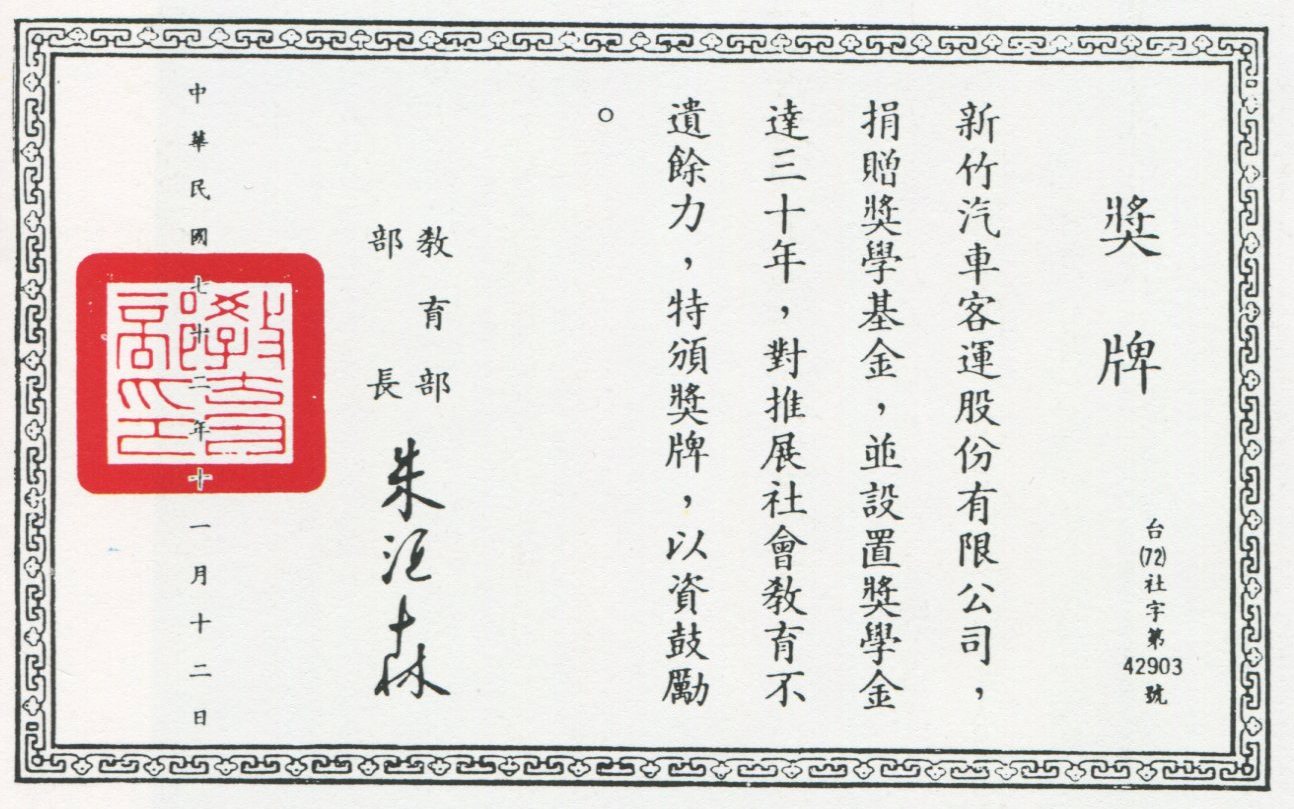 獎牌
台(72)社字第42903號
新竹汽車客運股份有限公司，
捐贈獎學基金，並設置獎學金
達三十年，對推展社會教育不
遺餘力，特頒獎牌，以資鼓勵
。
教育部
部長
朱匯森
中華民國七十二年十一月十二日
教育部印